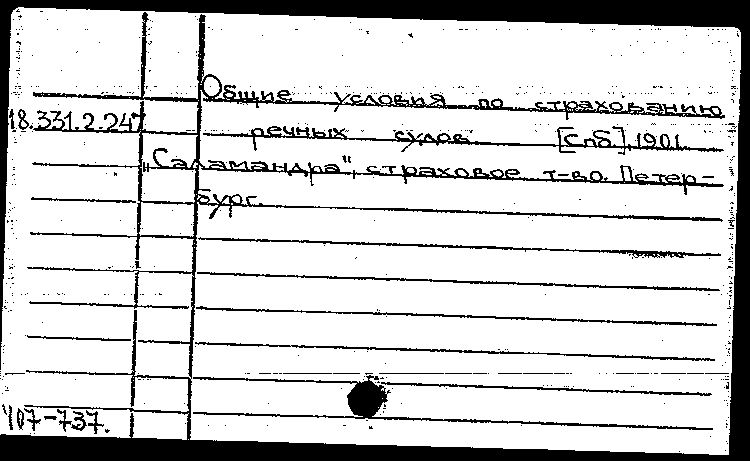 Общие условия по страхованию
18.331.2.247
речных судов [Спб], 1901.
„Саламандра", страховое т-во. Петер-
бург.
407-737.